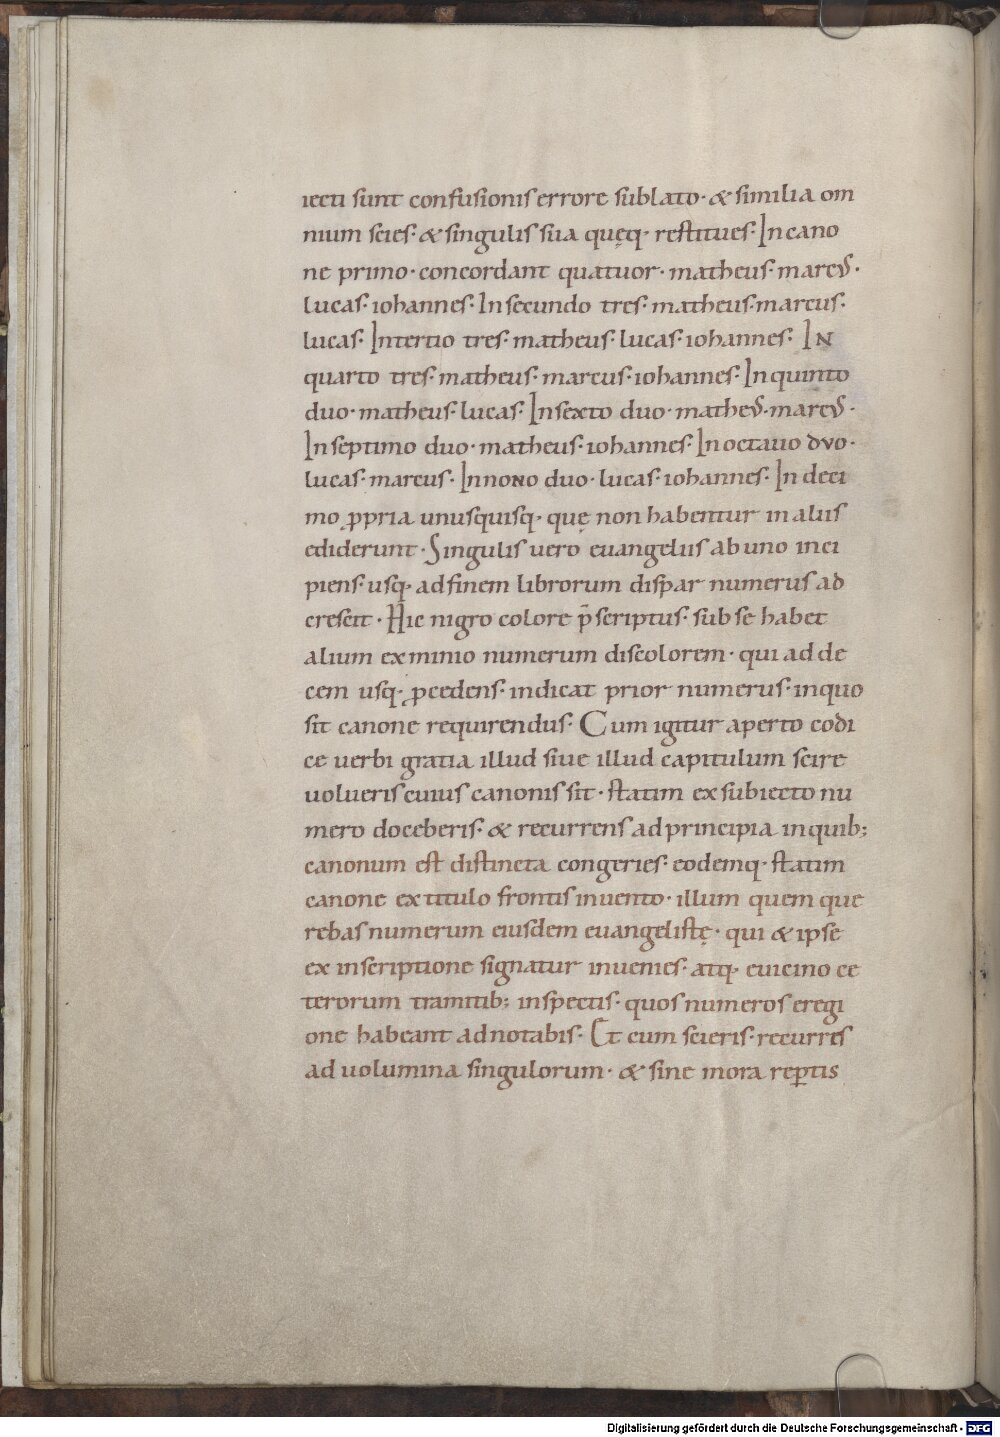 iecti sunt confusionis errore sublato· & similia om
nium scies· & singulis sua quęq· restitues· In cano
ne primo· concordant quatuor· matheus· marcus̄·
lucas· iohannes· In secundo tres· matheus· marcus·
lucas· In tertio tres· matheus· lucas· iohannes· IN
quarto tres· matheus· marcus· iohannes· In quinto
duo· matheus· lucas· In sexto duo· matheus̄· marcus̄·
In septimo duo· matheus· iohannes· In octauo duo·
lucas· marcus· In noNo duo· lucas· iohannes· In deci
mo ꝓpria unusquisq· quę non habentur in aliis
ediderunt· Singulis uero euangeliis ab uno inci
piens· usq· ad finem librorum dispar numerus ad
crescit· Hic nigro colore p̄scriptus· sub se habet
alium ex minio numerum discolorem· qui ad de
cem usq· ꝓcedens· indicat prior numerus· in quo
sit canone requirendus· Cum igitur aperto codi
ce uerbi gratia illud siue illud capitulum scire
uolueris cuius canonis sit· statim ex subiecto nu
mero doceberis· & recurrens ad principia in quib;
canonum est distincta congeries· eodemq· statim
canone ex titulo frontis inuento· illum quem que
rebas numerum eiusdem euangelistę· qui & ipse
ex inscriptione signatur inuenies· atq· euicino ce
terorum tramitib; inspectis· quos numeros eregi
one habeant adnotabis· Et cum scieris· recurris
ad uolumina singulorum· & sine mora reꝑtis
Digitalisierung gefördert durch die Deutsche Forschungsgemeinschaft - DFG